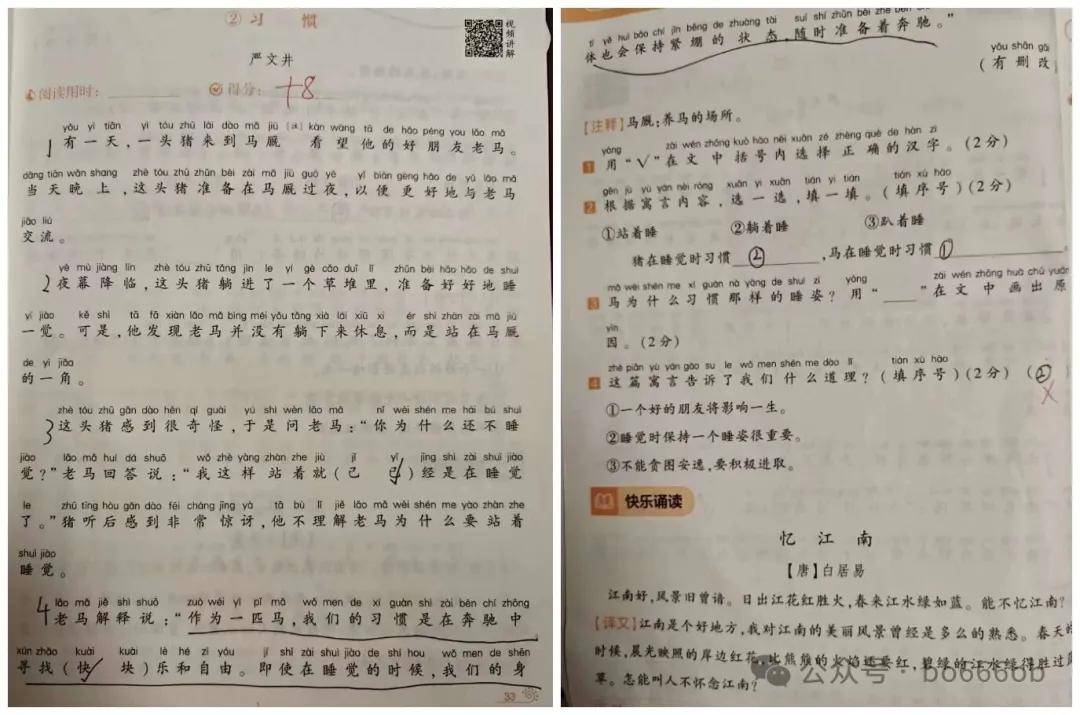 ② 习 惯
视频讲解
严文井
阅读用时：
得分：
+8
yǒu yì tiān yì tóu zhū lái dào mǎ jiù kàn wàng tā de hǎo péng you lǎo mǎ
1 有一天，一头猪来到马厩 看望他的好朋友老马。
dàng tiān wǎn shang zhè tóu zhū zhǔn bèi zài mǎ jiù guò yè yǐ biàn gèng hǎo de yǔ lǎo mǎ
当天晚上，这头猪准备在马厩过夜，以便更好地与老马
jiāo liú
交流。
yè mù jiàng lín zhè tóu zhū tǎng jìn le yí gè cǎo duī lǐ zhǔn bèi hǎo hǎo de shuì
2 夜幕降临，这头猪躺进了一个草堆里，准备好好地睡
yí jiào kě shì tā fā xiàn lǎo mǎ bìng méi yǒu tǎng xià lái xiū xi ér shì zhàn zài mǎ jiù
一觉。可是，他发现老马并没有躺下来休息，而是站在马厩
de yì jiǎo
的一角。
zhè tóu zhū gǎn dào hěn qí guài yú shì wèn lǎo mǎ nǐ wèi shén me hái bú shuì
3 这头猪感到很奇怪，于是问老马：“你为什么还不睡
jiào lǎo mǎ huí dá shuō wǒ zhè yàng zhàn zhe jiù jǐ yǐ jīng shì zài shuì jiào
觉？”老马回答说：“我这样站着就(己 已✓)经是在睡觉
le zhū tīng hòu gǎn dào fēi cháng jīng yà tā bù lǐ jiě lǎo mǎ wèi shén me yào zhàn zhe
了。”猪听后感到非常惊讶，他不理解老马为什么要站着
shuì jiào
睡觉。
lǎo mǎ jiě shì shuō zuò wéi yì pǐ mǎ wǒ men de xí guàn shì zài bēn chí zhōng
4 老马解释说：“作为一匹马，我们的习惯是在奔驰中
xún zhǎo kuài kuài lè hé zì yóu jí shǐ zài shuì jiào de shí hou wǒ men de shēn
寻找(快✓ 块)乐和自由。即使在睡觉的时候，我们的身
33
tǐ yě huì bǎo chí jǐn bēng de zhuàng tài suí shí zhǔn bèi zhe bēn chí
体也会保持紧绷的状态，随时准备着奔驰。”
yǒu shān gǎi
(有删改)
【注释】马厩：养马的场所。
yòng zài wén zhōng kuò hào nèi xuǎn zé zhèng què de hàn zì
1 用“√”在文中括号内选择正确的汉字。(2分)
gēn jù yù yán nèi róng xuǎn yi xuǎn tián yi tián tián xù hào
2 根据寓言内容，选一选，填一填。(填序号)(2分)
①站着睡 ②躺着睡 ③趴着睡
猪在睡觉时习惯 ② ,马在睡觉时习惯 ① 。
mǎ wèi shén me xí guàn nà yàng de shuì zī yòng zài wén zhōng huà chū yuán
3 马为什么习惯那样的睡姿？用“____”在文中画出原
yīn
因。(2分)
zhè piān yù yán gào su le wǒ men shén me dào lǐ tián xù hào
4 这篇寓言告诉了我们什么道理？(填序号)(2分) (②
①一个好的朋友将影响一生。
②睡觉时保持一个睡姿很重要。
③不能贪图安逸，要积极进取。
快乐诵读
忆 江 南
【唐】白居易
江南好，风景旧曾谙。日出江花红胜火，春来江水绿如蓝。能不忆江南？
【译文】江南是个好地方，我对江南的美丽风景曾经是多么的熟悉。春天的
时候，晨光映照的岸边红花，比熊熊的火焰还要红，碧绿的江水绿得胜过蓝
草。怎能叫人不怀念江南？
公众号 · bo6666b